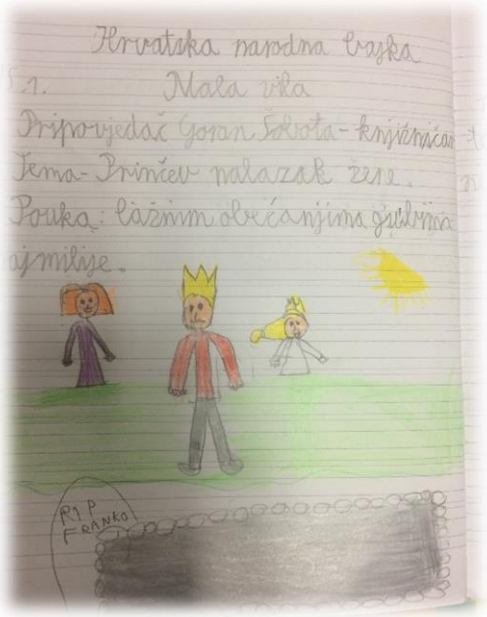 Hrvatska narodna bajka
5.1.
Mala vila
Pripovjedač Goran Šobota - knjižničar
Tema - Prinčev nalazak žene.
Pouka: lažnim obećanjima gubimo
ajmilije.
RIP
FRANKO